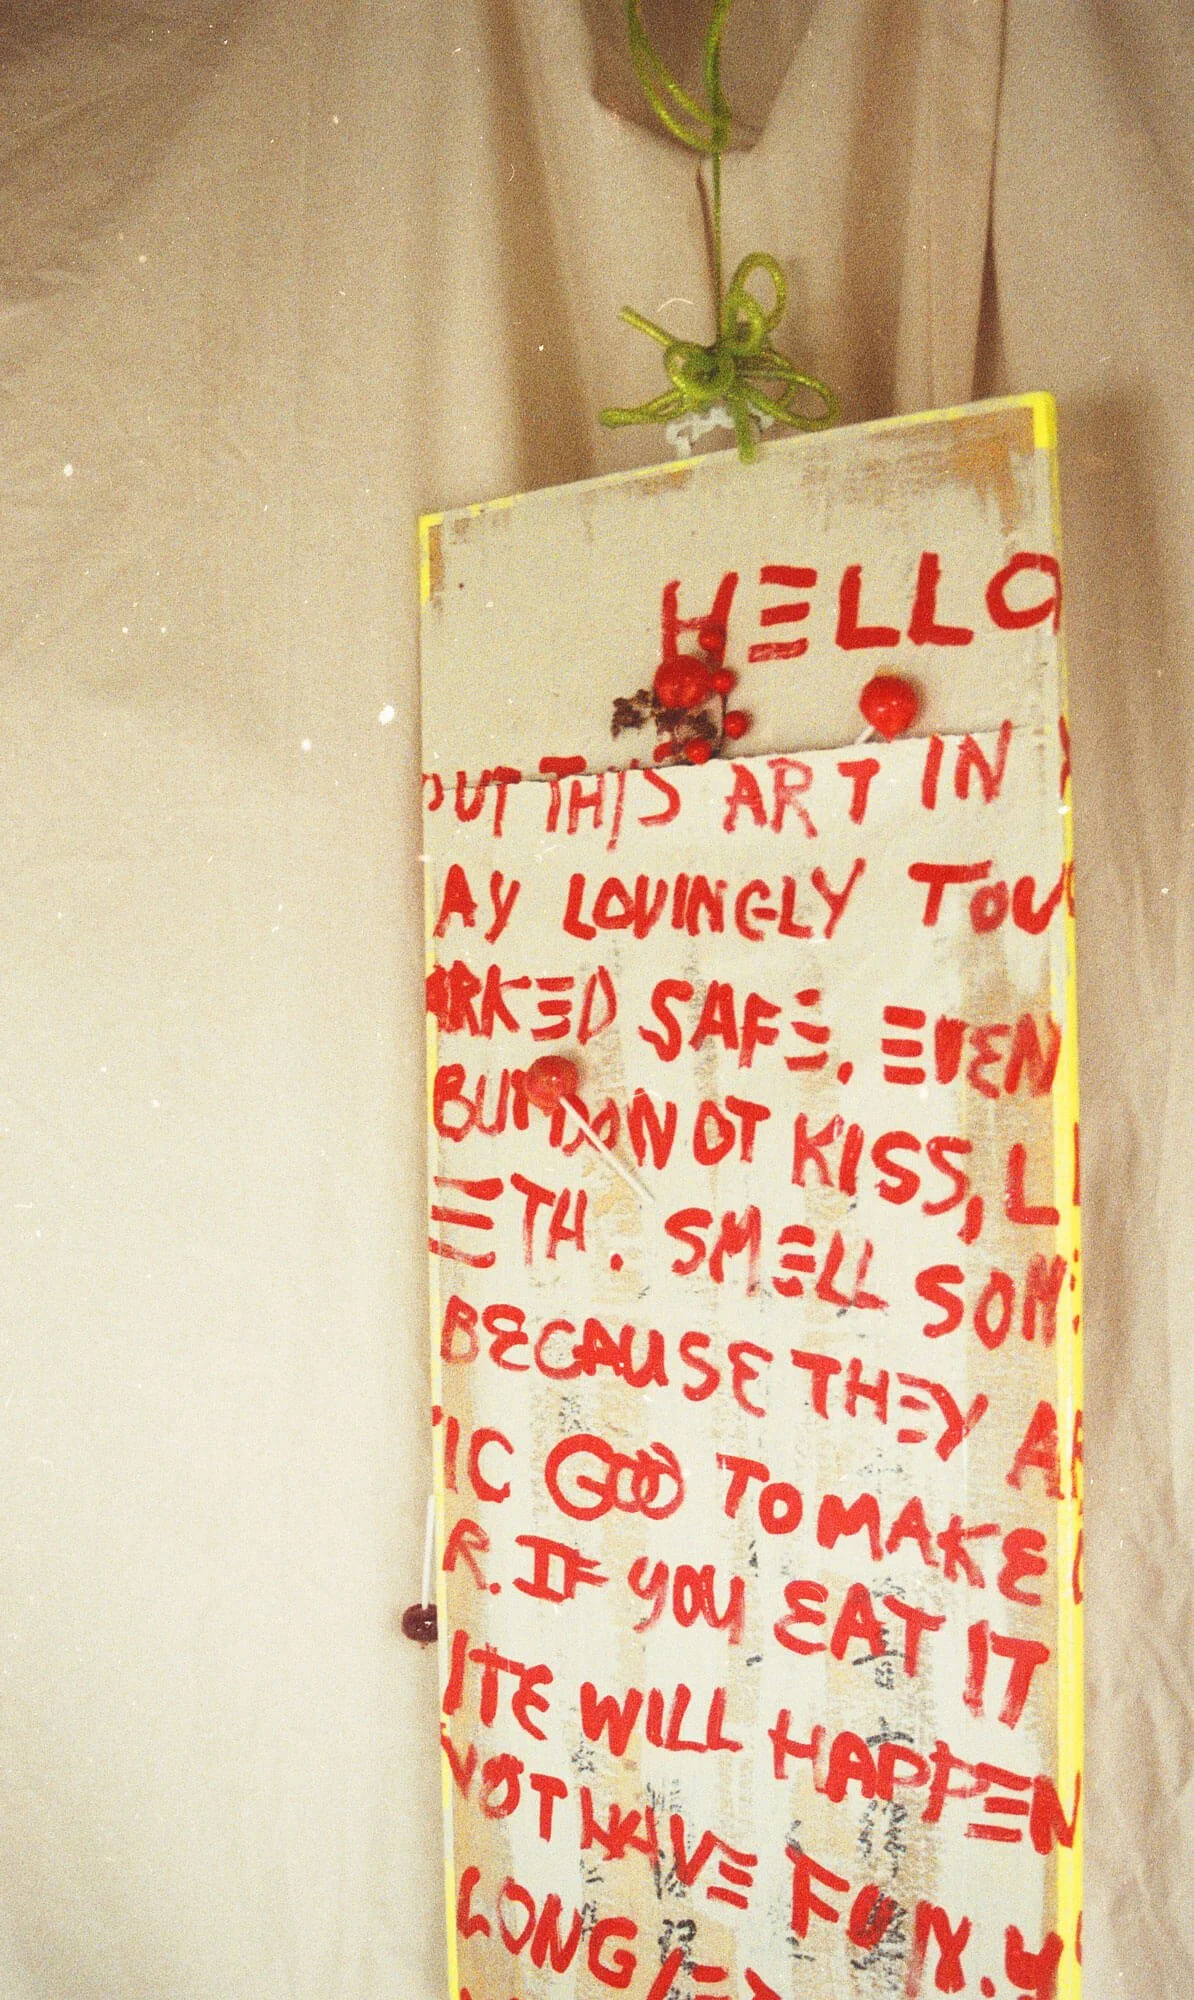 HELLO
OUT THIS ART IN
AY LOVINGLY TOU
ARKED SAFE. EVEN
BUT DO NOT KISS, L
EETH. SMELL SOM
BECAUSE THEY AR
TIC GOO TO MAKE
R. IF YOU EAT IT
ITE WILL HAPPEN
NOT HAVE FUN. Y
LONG